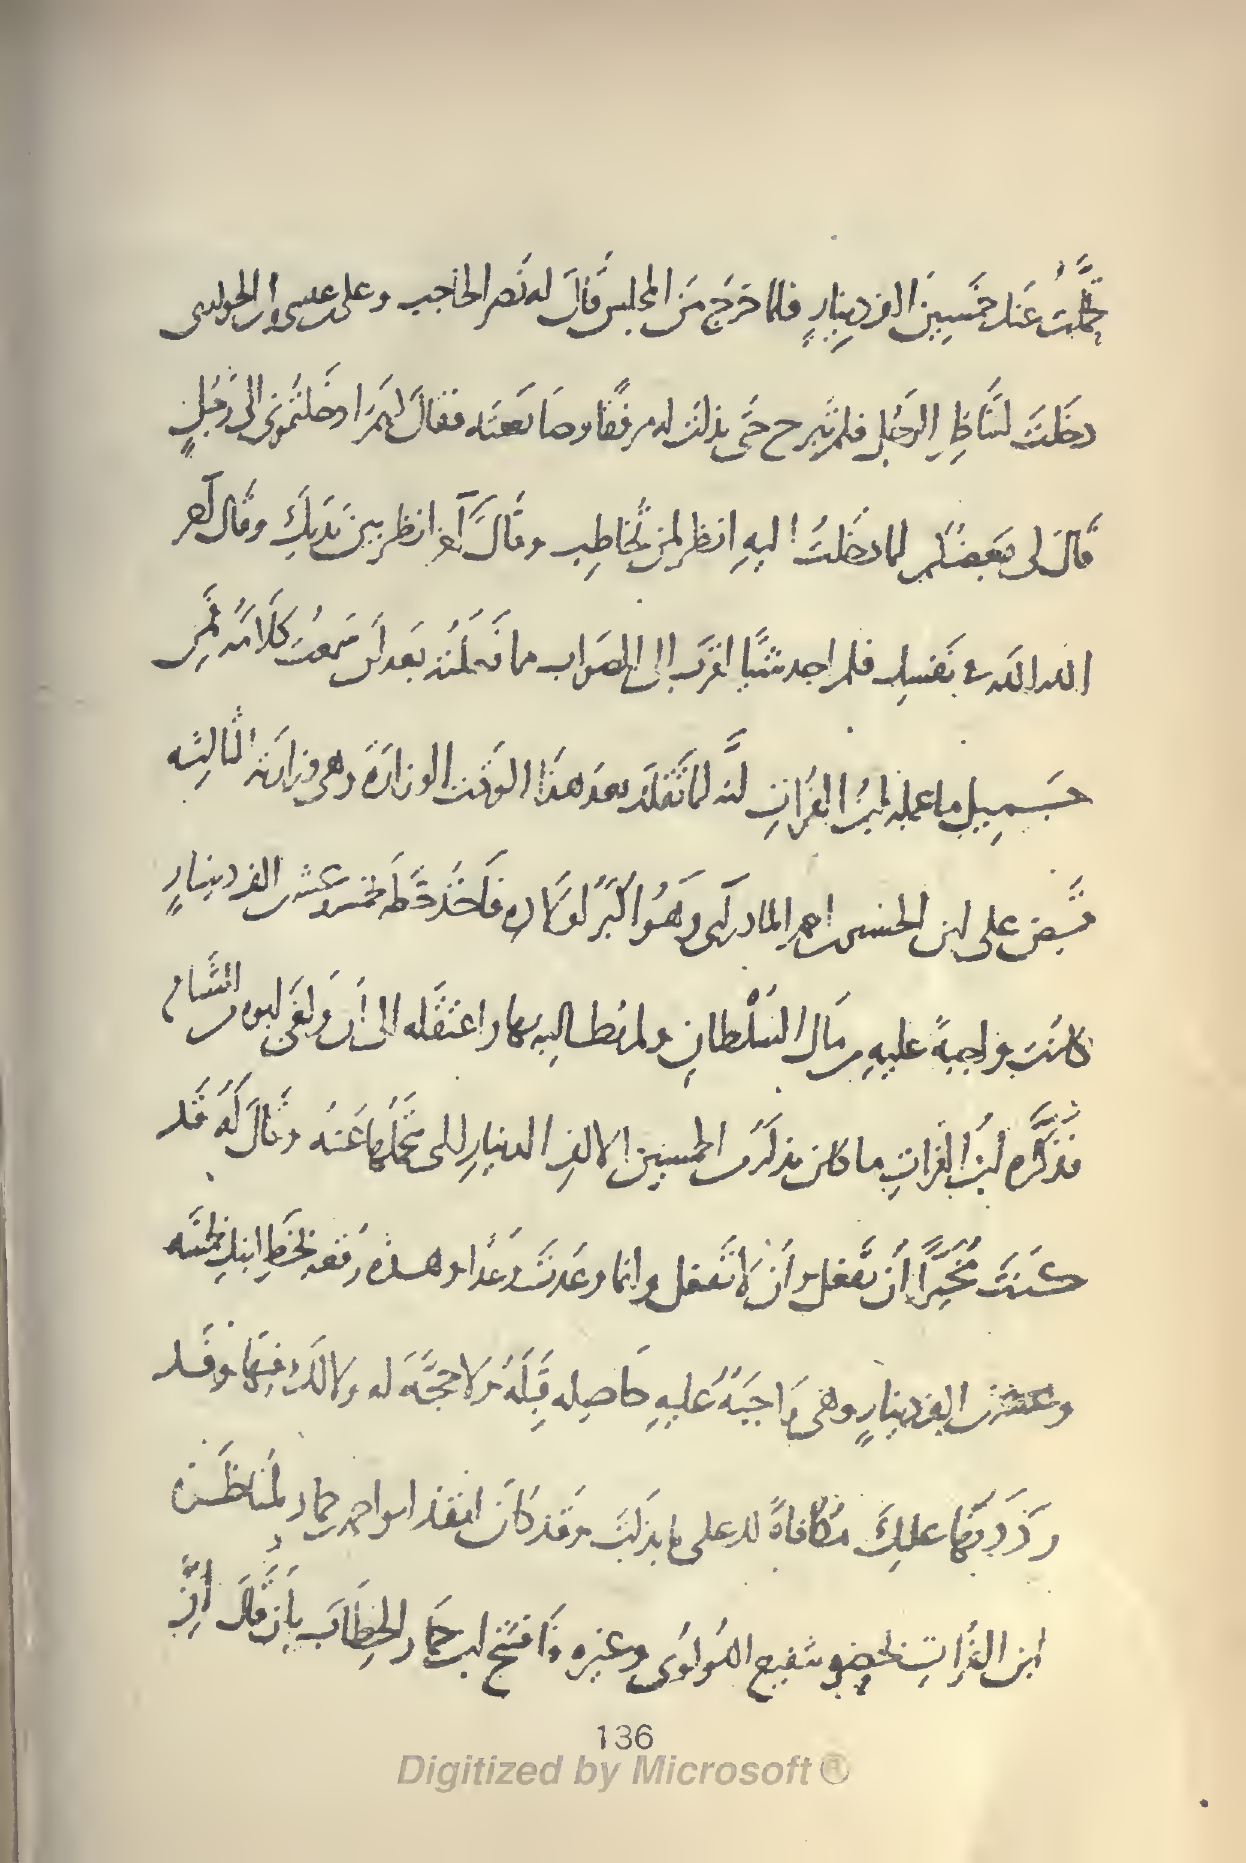 تحملت عنك خمسين الف دينارٍ فلما خرج من المجلس قال له نصر الحاجب وعلى بن عيسى وابن الحوارى
دخلت لتناظر الرجل فلم تبرح حتى بذلت له مرفقا وصانعته فقال لهم ادخلتمونى الى رجلٍ
قال لى بعضكم لما دخلت اليه انظر لمن تخاطب وقال آخر انظر بين يديك وقال آخر
الله الله فى نفسك فلم اجد شيئًا اقرب الى الصواب مما فعلته بعد ان سمعت كلامه فمن
جميل ما عمله ابن الفرات انه لما تقلد بعد هذا الوقت الوزارة وهى وزارته الثالثه
قبض على ابن الحسين بن احمد الماذرائى وهو اكبر اولاده فاخذ خطه بخمسه وعشرين الف دينارٍ
كانت واجبةً عليه من مال السلطان ولم يطالبه بها واعتقله الى ان وافى ابوه من الشام
فذكّره ابن الفرات ما كان بذله من الخمسين الالف الدينار التى تحملها عنه وقال له قد
كنت مخيرًا أن تفعل وأن لا تفعل وانما وعدت وعدًا وهذه رقعه بخط ابنك بخمسه
وعشرين الف دينارٍ وهى واجبةٌ عليه حاصله قبله ولا حجّة له ولا لك فيها وقد
رددتها عليك مكافاةً لك على ما بذلت وقد كان انفذ ابو احمد بن حماد لمناظره
ابن الفرات بحضره شفيع اللولوى وغيره فافتتح ابن حماد الخطاب بأن قال ان
136
Digitized by Microsoft ®